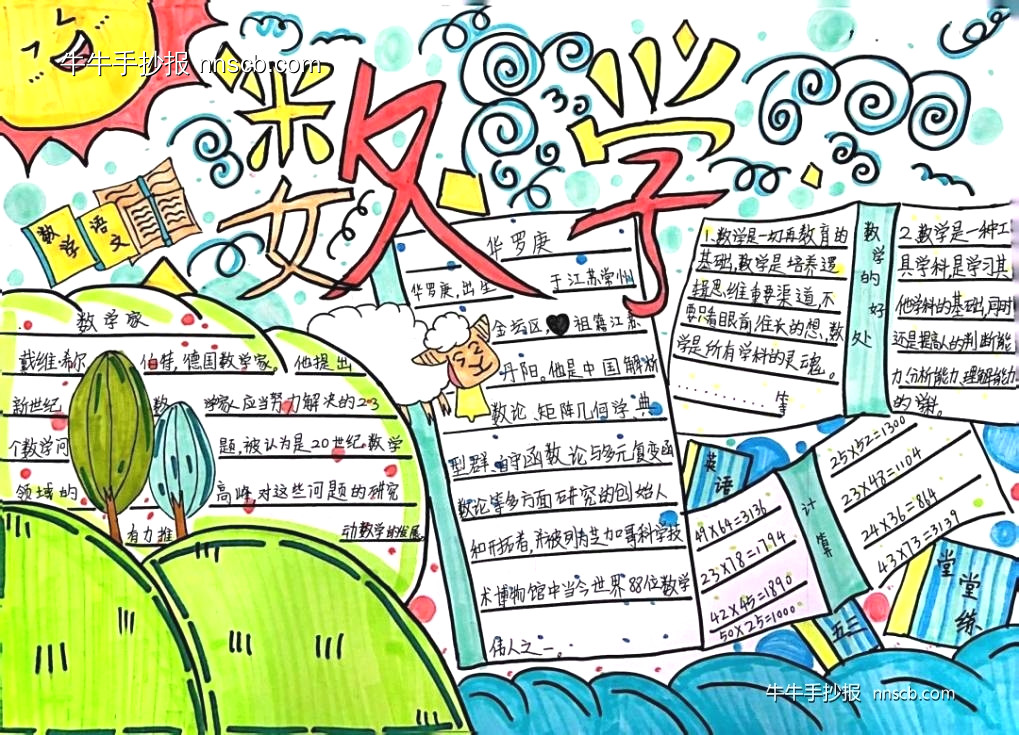 牛牛手抄报 nnscb.com
数学
数学
语文
数学家
戴维·希尔伯特，德国数学家。他提出
新世纪数学家应当努力解决的23
个数学问题，被认为是20世纪数学
领域的高峰，对这些问题的研究
有力推动数学的发展。
华罗庚
华罗庚，出生于江苏常州
金坛区，祖籍江苏
丹阳。他是中国解析
数论、矩阵几何学、典
型群、自守函数论与多元复变函
数论等多方面研究的创始人
和开拓者，并被列为芝加哥科学技
术博物馆中当今世界88位数学
伟人之一。
数学的好处
1.数学是一切再教育的
基础，数学是培养逻
辑思维重要渠道，不
要只看眼前，往长的想，数
学是所有学科的灵魂。
等
2.数学是一种工
具学科，是学习其
他学科的基础，同时
还是提高人的判断能
力、分析能力、理解能力
的学科。
英语
计算
49X64=3136
23X78=1794
42X45=1890
50X25=1000
25X52=1300
23X48=1104
24X36=864
43X73=3139
堂堂练
五三
牛牛手抄报 nnscb.com